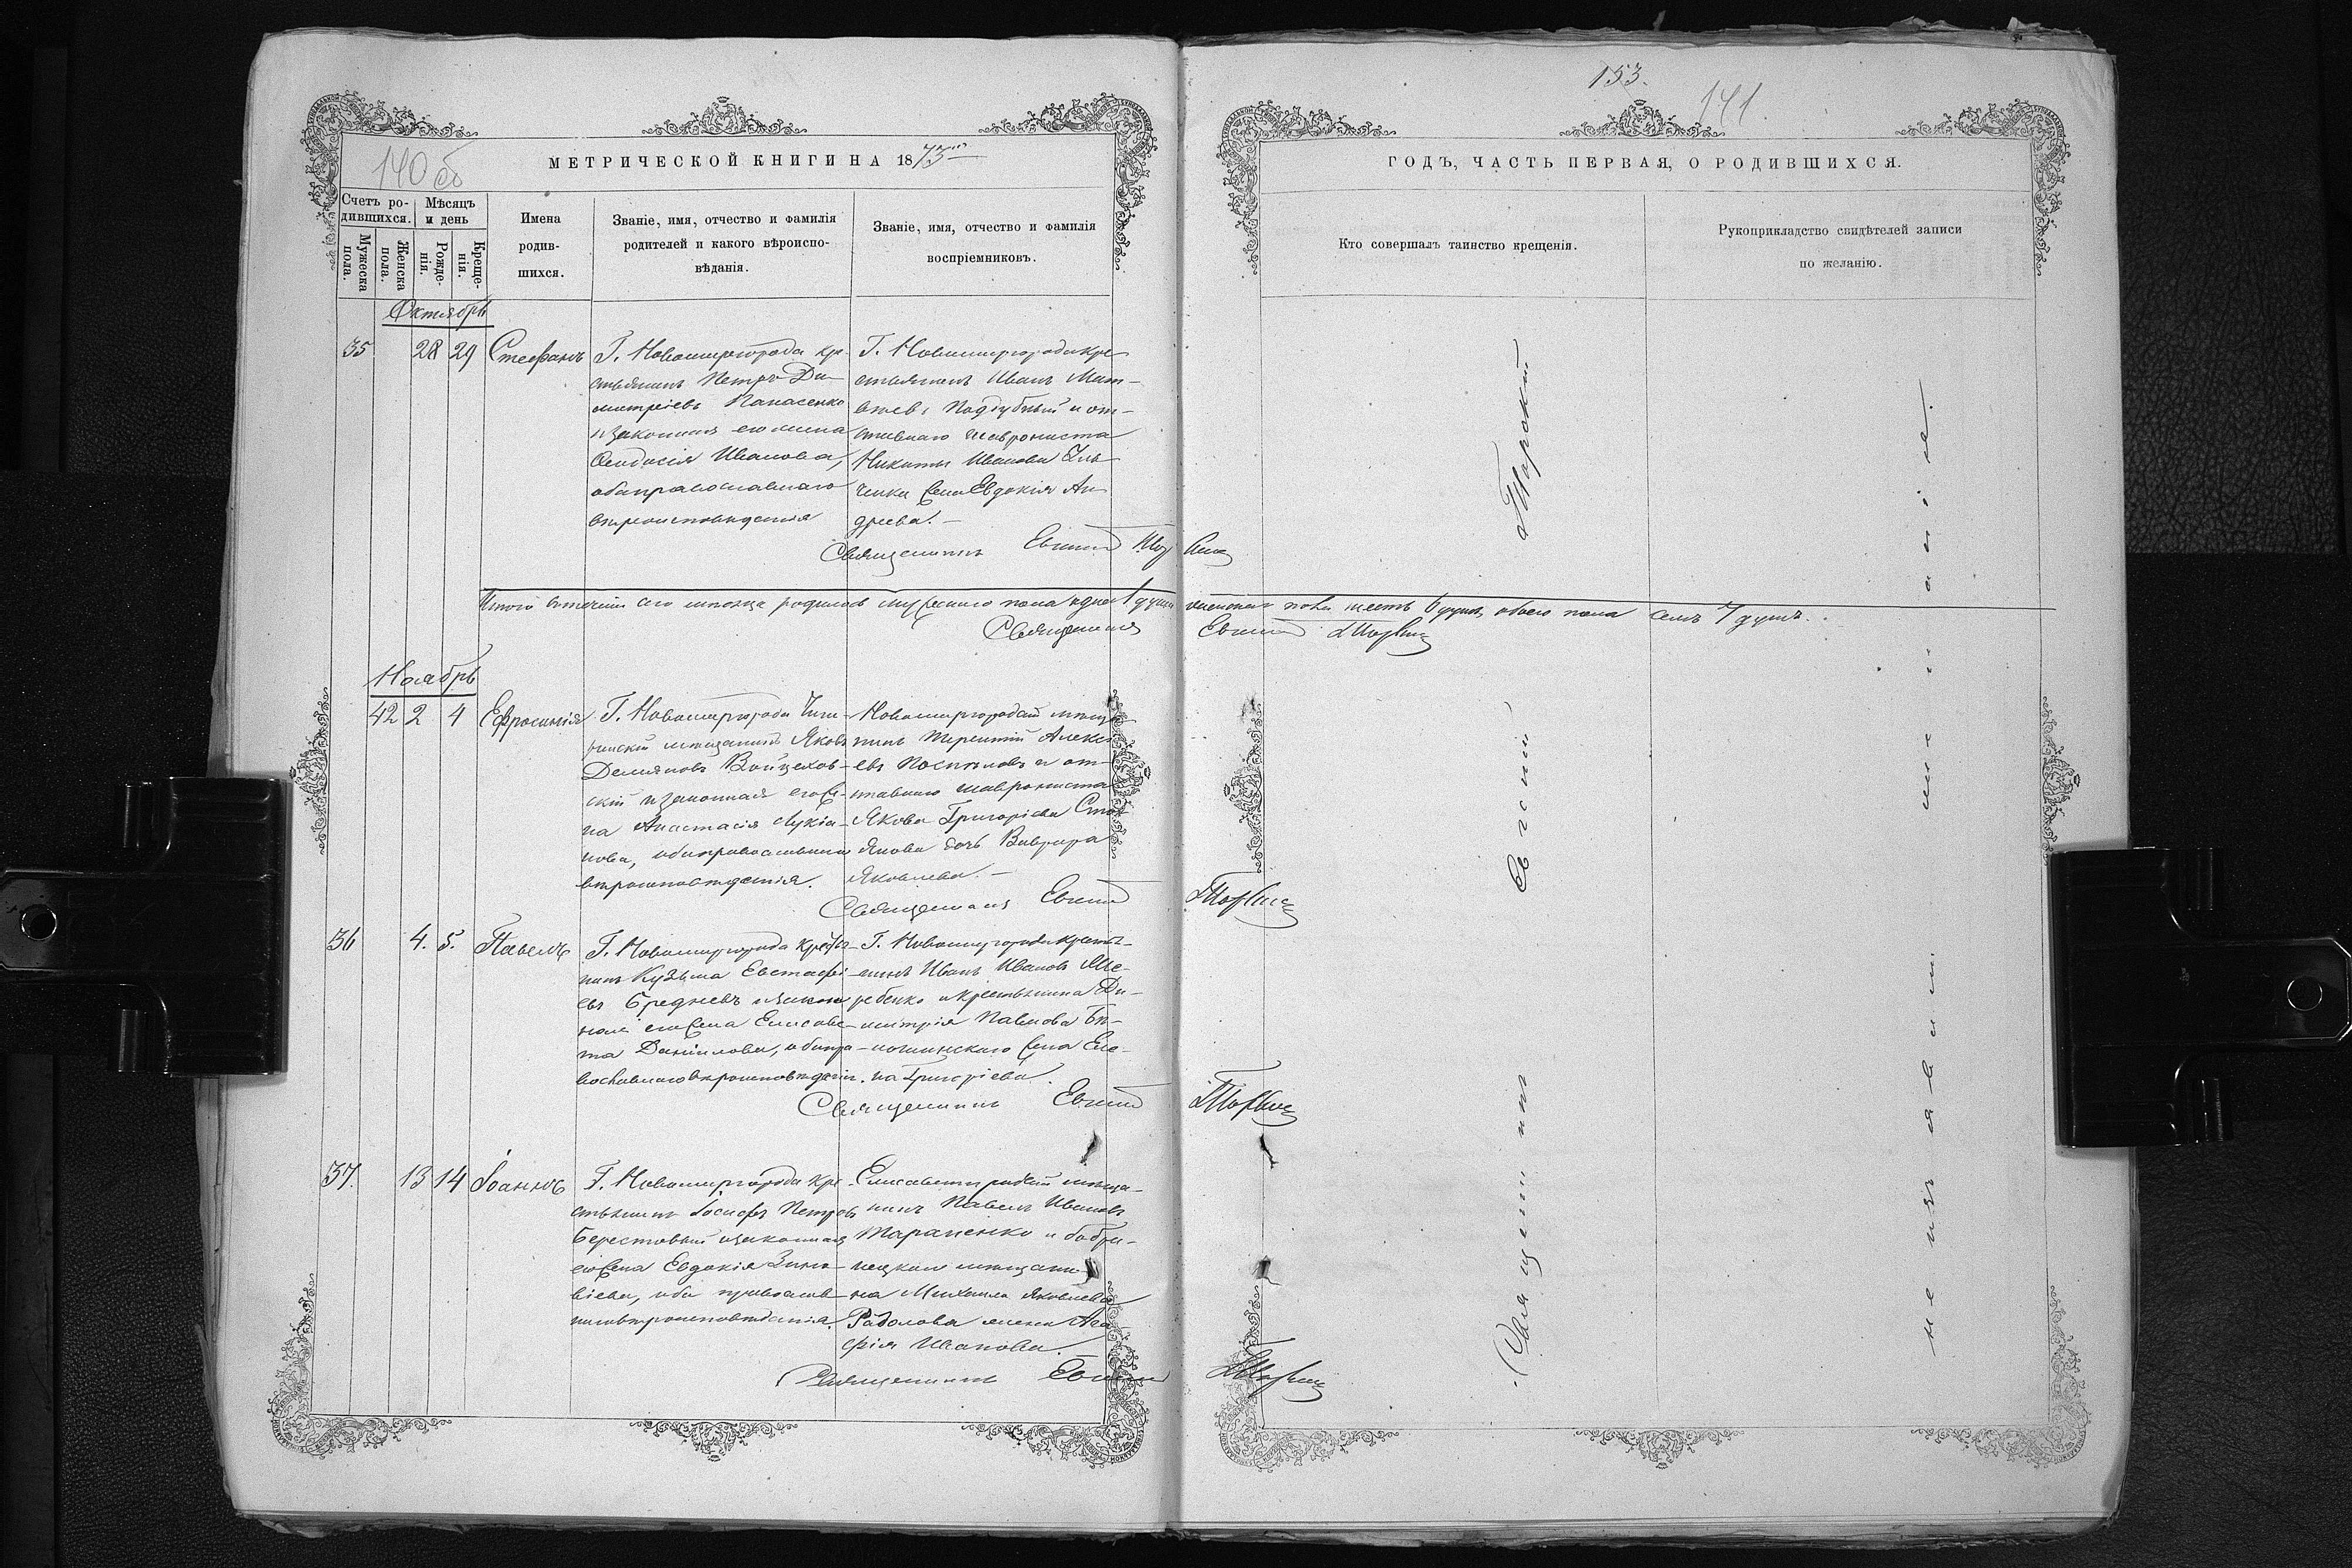 153.
141.
140 об
МЕТРИЧЕСКОЙ КНИГИ НА 1873
ГОДЪ, ЧАСТЬ ПЕРВАЯ, О РОДИВШИХСЯ.
Счетъ ро-
дившихся.
Мужеска
пола.
Женска
пола.
Мѣсяцъ
и день
Рожде-
нія.
Креще-
нія.
Имена
родив-
шихся.
Званіе, имя, отчество и фамилія
родителей и какого вѣроиспо-
вѣданія.
Званіе, имя, отчество и фамилія
воспріемниковъ.
Кто совершалъ таинство крещенія.
Рукоприкладство свидѣтелей записи
по желанію.
Октябрь
35 28 29 Стефанъ
Г. Новомиргорода кре-
стьянинъ Петръ Ди-
митріевъ Панасенко
и законная его жена
Ѳеодосія Иванова,
оба православнаго
вѣроисповѣданія
Г. Новомиргорода кре
стьянинъ Иванъ Мат-
вѣевъ Поддубный и от-
ставнаго
Никиты Иванова
жена Евдокія Ан
дреева.-
Священникъ Евгеній
Итого втеченіи сего мѣсяца родилось мужескаго пола одна 1 душа женскаго пола шесть 6 душъ, обоего пола семь 7 душъ.
Священникъ Евгеній
Ноябрь
42 2 4 Ефросинія
Г. Новомиргорода Чиги-
ринскій мѣщанинъ Яковъ
Демяновъ Войцехов-
скій и законная его же-
на Анастасія Лукіа-
нова, оба православнаго
вѣроисповѣданія.
Новомиргородскій мѣща-
нинъ Терентій Алексѣ
евъ Поспѣловъ и от-
ставнаго
Якова Григоріева
дочь Варвара
Яковлева.-
Священникъ Евгеній
36 4. 5. Павелъ
Г. Новомиргорода крестья-
нинъ Кузьма Евстафі-
евъ Средневъ и закон
ная его жена Елисаве-
та Даніилова, оба пра-
вославнаго вѣроисповѣданія.
Г. Новомиргорода крестья-
нинъ Иванъ Ивановъ Же-
ребенко и крестьянина Ди-
митрія Павлова Бѣ-
жена Еле-
на Григоріева.
Священникъ Евгеній
37. 13 14 Іоаннъ
Г. Новомиргорода кре-
стьянинъ Іосифъ Петровъ
Берестовый и законная
его жена Евдокія Зино-
віева, оба православ-
наго вѣроисповѣданія.
Елисаветградскій мѣща-
нинъ Павелъ Ивановъ
Тараненко и бобри-
нецкаго мѣщани-
на Михаила Яковлева
жена Ага-
фія Иванова.
Священникъ Евгеній
Священникъ Евгеній
не изъявили желанія.